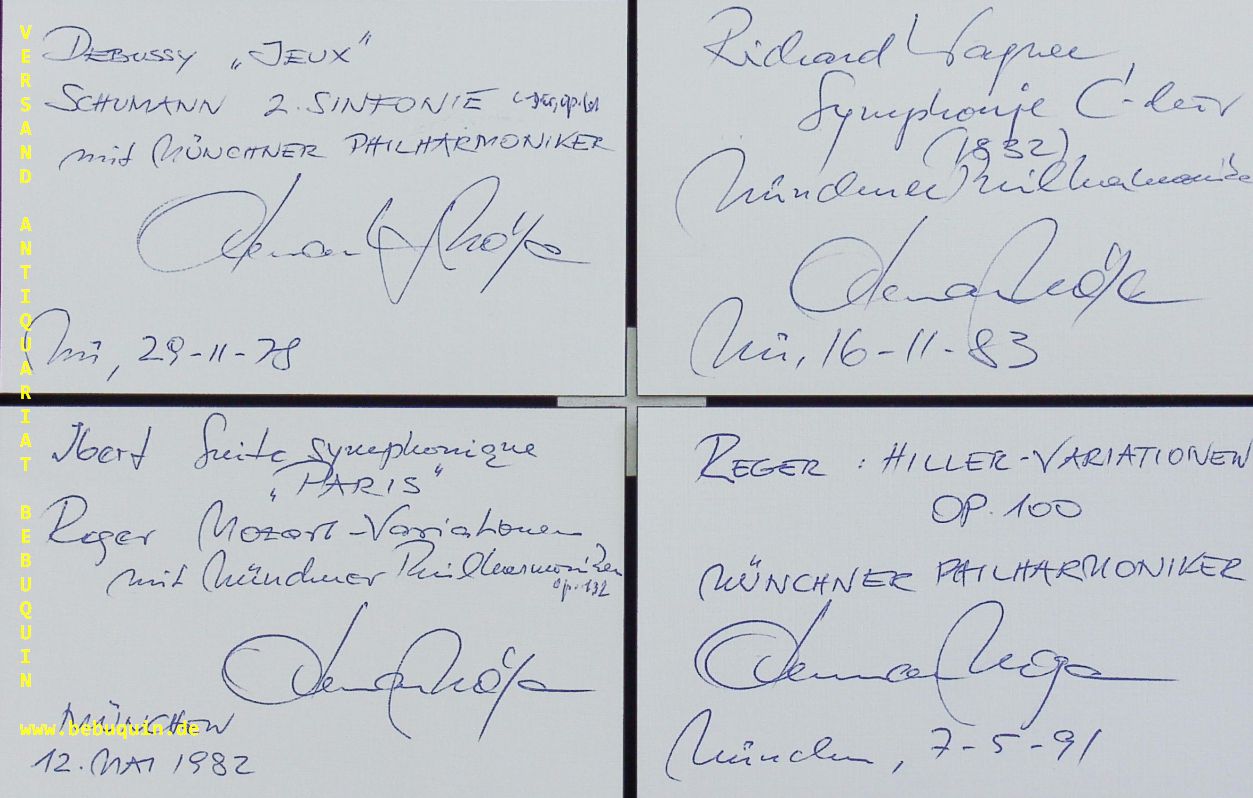 DEBUSSY „JEUX"
SCHUMANN 2. SINFONIE C-Dur, op. 61
mit MÜNCHNER PHILHARMONIKER
Mü, 29-11-78
Richard Wagner
Symphonie C-dur
(1832)
Münchner Philharmoniker
Mü, 16-11-83
Ibert Suite symphonique
„PARIS"
Reger Mozart-Variationen
mit Münchner Philharmoniker
op. 132
MÜNCHEN
12. MAI 1982
REGER : HILLER-VARIATIONEN
OP. 100
MÜNCHNER PHILHARMONIKER
München, 7-5-91
VERSAND ANTIQUARIAT BEBUQUIN
www.bebuquin.de